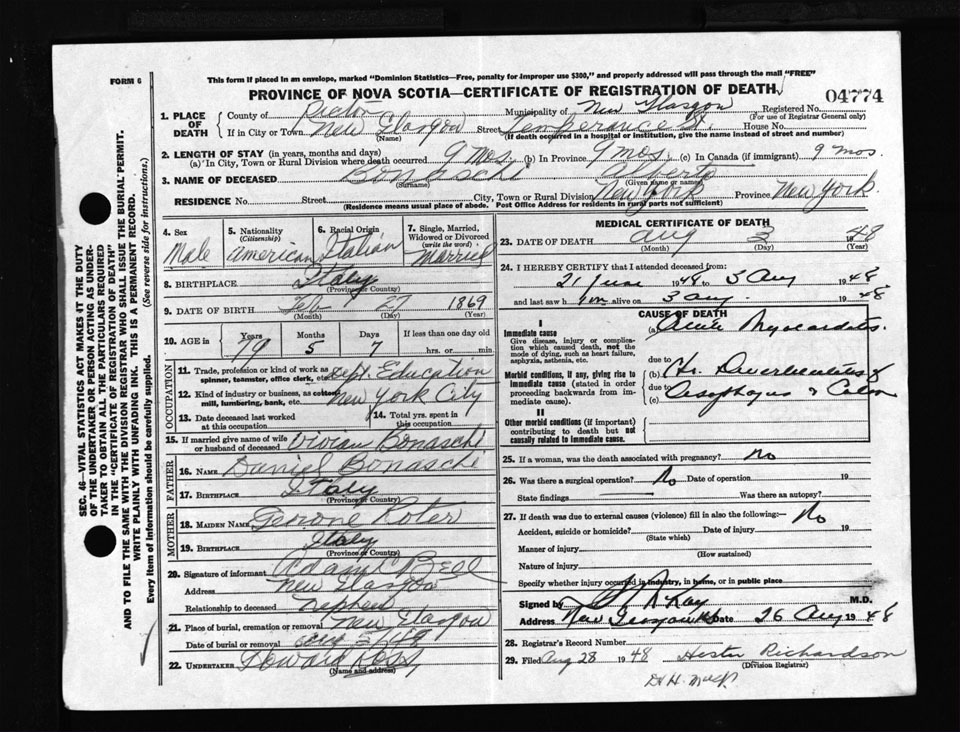 FORM 6
This form if placed in an envelope, marked "Dominion Statistics—Free, penalty for improper use $300," and properly addressed will pass through the mail "FREE"
PROVINCE OF NOVA SCOTIA—CERTIFICATE OF REGISTRATION OF DEATH
04774
1. PLACE OF DEATH
County of Pictou Municipality of New Glasgow Registered No.
(For use of Registrar General only)
If in City or Town New Glasgow Street Temperance St. House No.
(Name) (If death occurred in a hospital or institution, give the name instead of street and number)
2. LENGTH OF STAY (in years, months and days)
(a) In City, Town or Rural Division where death occurred 9 mos. (b) In Province 9 mos. (c) In Canada (if immigrant) 9 mos.
3. NAME OF DECEASED Bonaschi Alberto
(Surname) (Given name or names)
RESIDENCE No. Street City, Town or Rural Division New York Province New York.
(Residence means usual place of abode. Post Office Address for residents in rural parts not sufficient)
4. Sex Male
5. Nationality (Citizenship) American
6. Racial Origin Italian
7. Single, Married, Widowed or Divorced (write the word) Married
8. BIRTHPLACE Italy
(Province or Country)
9. DATE OF BIRTH Feb 27 1869
(Month) (Day) (Year)
10. AGE in Years Months Days If less than one day old
79 5 7 hrs. or min.
OCCUPATION
11. Trade, profession or kind of work as spinner, teamster, office clerk, etc. Dept. Education
12. Kind of industry or business, as cotton mill, lumbering, bank, etc. New York City
13. Date deceased last worked at this occupation
14. Total yrs. spent in this occupation
15. If married give name of wife or husband of deceased Vivian Bonaschi
FATHER
16. NAME Daniel Bonaschi
17. BIRTHPLACE Italy
(Province or Country)
MOTHER
18. MAIDEN NAME
19. BIRTHPLACE Italy
(Province or Country)
20. Signature of informant Adam C Bell
Address New Glasgow
Relationship to deceased nephew
21. Place of burial, cremation or removal New Glasgow
Date of burial or removal
22. UNDERTAKER Howard Ross
(Name and address)
MEDICAL CERTIFICATE OF DEATH
23. DATE OF DEATH Aug 3 1948
(Month) (Day) (Year)
24. I HEREBY CERTIFY that I attended deceased from:
21 June 1948 to 3 Aug 1948
and last saw him alive on 3 Aug. 1948
CAUSE OF DEATH
I
Immediate cause
Give disease, injury or complication which caused death, not the mode of dying, such as heart failure, asphyxia, asthenia, etc.
(a) Acute Myocarditis.
due to
Morbid conditions, if any, giving rise to immediate cause (stated in order proceeding backwards from immediate cause).
(b) Diverticulitis of
due to
(c) Oesophagus & Colon
II
Other morbid conditions (if important) contributing to death but not causally related to immediate cause.
25. If a woman, was the death associated with pregnancy? No
26. Was there a surgical operation? No Date of operation 19
State findings Was there an autopsy?
27. If death was due to external causes (violence) fill in also the following:— No
Accident, suicide or homicide? Date of injury 19
(State which)
Manner of injury
(How sustained)
Nature of injury
Specify whether injury occurred in industry, in home, or in public place
Signed by M.D.
Address New Glasgow NS Date 26 Aug 1948
28. Registrar's Record Number
29. Filed Aug 28 1948 Hester Richardson
(Division Registrar)
SEC. 46—VITAL STATISTICS ACT MAKES IT THE DUTY
OF THE UNDERTAKER OR PERSON ACTING AS UNDER-
TAKER TO OBTAIN ALL THE PARTICULARS REQUIRED
IN THE "CERTIFICATE OF REGISTRATION OF DEATH"
AND TO FILE THE SAME WITH THE DIVISION REGISTRAR WHO SHALL ISSUE THE BURIAL PERMIT.
WRITE PLAINLY WITH UNFADING INK. THIS IS A PERMANENT RECORD.
Every item of Information should be carefully supplied. (See reverse side for instructions.)